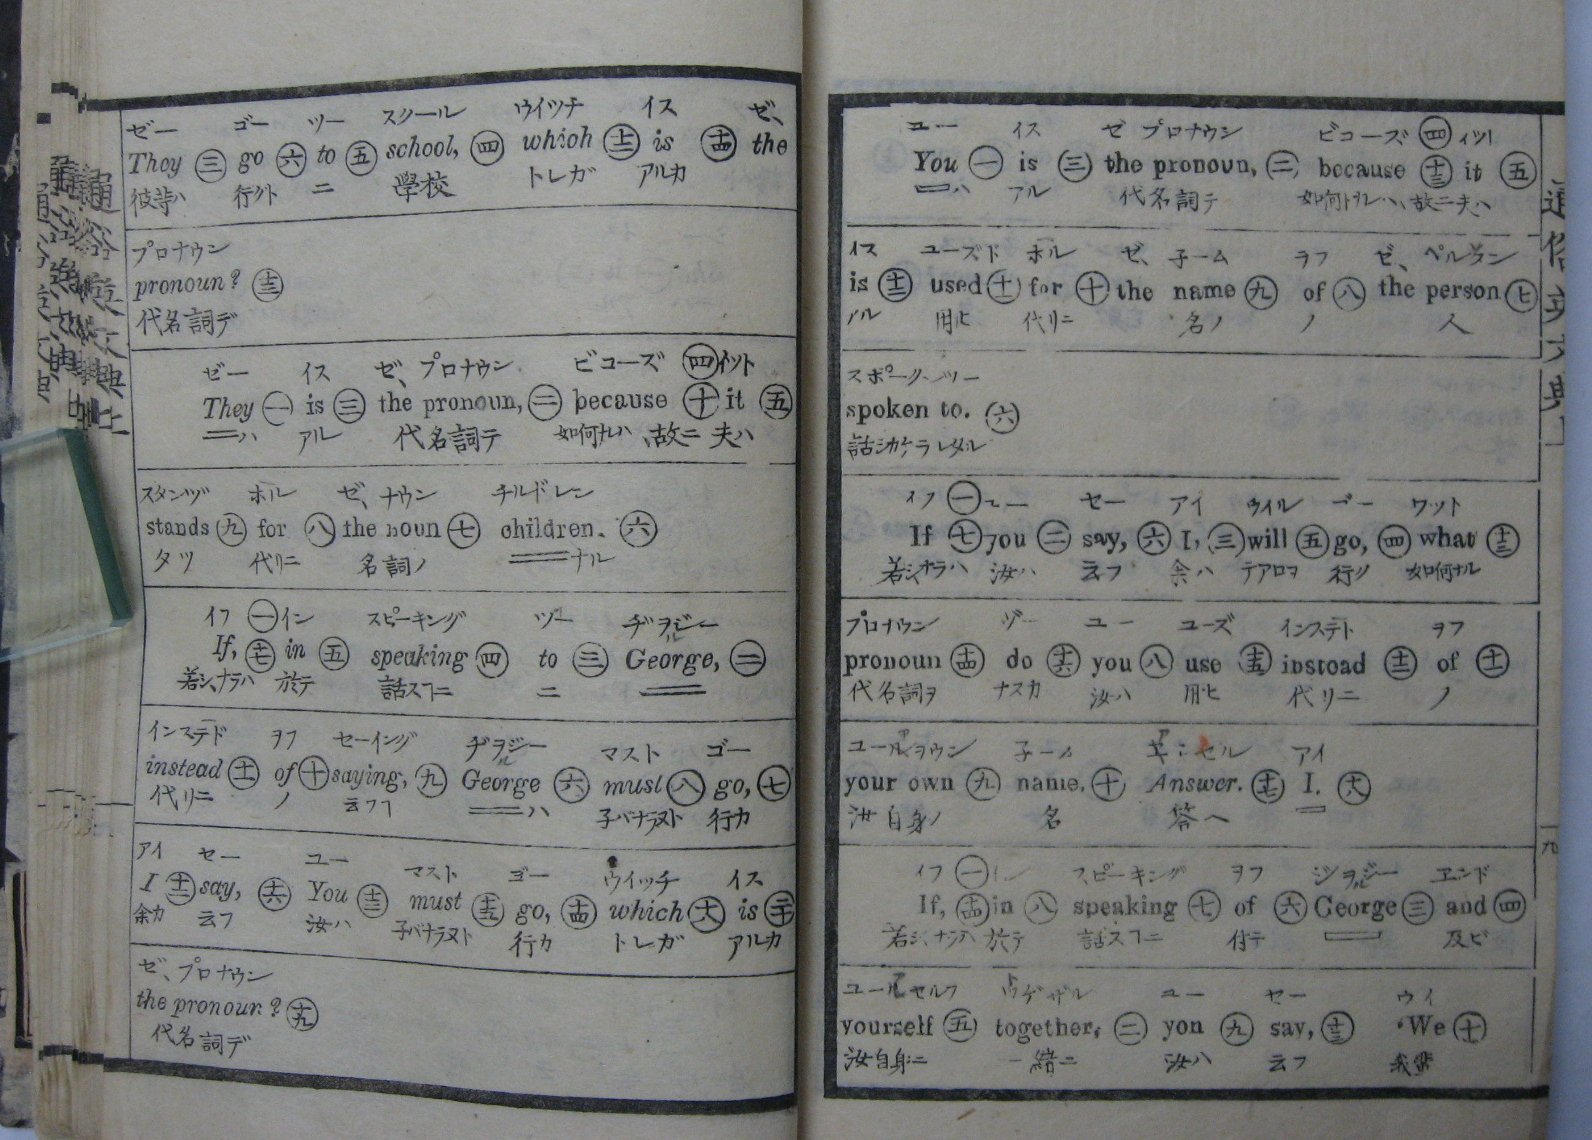 ゼー ゴー ツー スクール ウイツチ イス ゼ、
They ㊂ go ㊅ to ㊄ school, ㊃ which ㊉ is the
彼等ハ 行ク ニ 學校 トレガ アルカ
プロナウン
pronoun? ⑬
代名詞デ
ゼー イス ゼ、プロナウン ビコーズ ㊃ イツト
They ㊀ is ㊂ the pronoun, ㊁ because ㊉ it ㊄
ハ アル 代名詞テ 如何ナレハ、故ニ 夫ハ
スタンヅ ホル ゼ、ナウン チルドレン
stands ㊈ for ㊇ the noun ㊆ children. ㊅
タツ 代リニ 名詞ノ ナル
イフ ㊀ イン スピーキング ツー ヂヲジー
If, ⑰ in ㊄ speaking ㊃ to ㊂ George, ㊁
若シ、ナラハ 於テ 話スフニ ニ
インステド ヲフ セーイング ヂヲジー マスト ゴー
instead ⑪ of ㊉ saying, ㊈ George ㊅ must ㊇ go, ㊆
代リニ ノ 云フ ハ 子バナラヌト 行カ
アイ セー ユー マスト ゴー ウイッチ イス
I ⑫ say, ⑯ You ⑬ must ⑮ go, ⑭ which ⑱ is ⑳
余カ 云フ 汝ハ 子バナラヌト 行カ トレガ アルカ
ゼ、プロナウン
the pronoun? ⑲
代名詞デ
ユー イス ゼ プロナウン ビコーズ ㊃ イツト
You ㊀ is ㊂ the pronoun, ㊁ because ⑬ it ㊄
ハ アル 代名詞テ 如何トナレハ、故ニ 夫ハ
イス ユーズド ホル ゼ、子ーム ヲフ ゼ、ペルソン
is ⑫ used ⑪ for ㊉ the name ㊈ of ㊇ the person ㊆
用ヒ 代リニ 名ノ ノ 人
スポークンツー
spoken to. ㊅
話シカケラレタル
イフ ㊀ ユー セー アイ ウイル ゴー ワット
If ㊆ you ㊁ say, ㊅ I, ㊂ will ㊄ go, ㊃ what ⑬
若シ、ナラハ 汝ハ 云フ 余ハ テアロヲ 行ク 如何ナル
プロナウン ヅー ユー ユーズ インステト ヲフ
pronoun ⑭ do ⑯ you ㊇ use ⑮ instead ⑫ of ⑪
代名詞ヲ ナスカ 汝ハ 用ヒ 代リニ ノ
ユール ヲウン 子ーム セル アイ
your own ㊈ name, ㊉ Answer. ⑰ I. ⑱
汝自身ノ 名 答ヘ
イフ ㊀ イン スピーキング ヲフ ジー エンド
If, ⑭ in ㊇ speaking ㊆ of ㊅ George ㊂ and ㊃
若シ、ナラハ 於テ 話スフニ 付テ 及ビ
ユールセルフ ユー セー ウイ
yourself ㊄ together, ㊁ you ㊈ say, ⑬ We ㊉
汝自身ニ 一緒ニ 汝ハ 云フ 我等